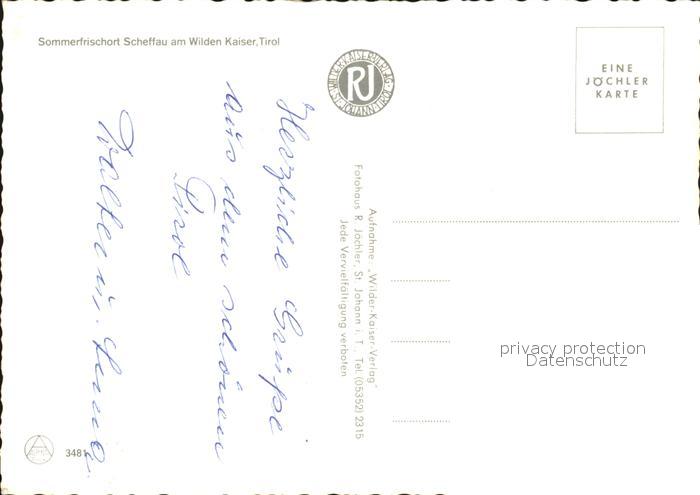 Sommerfrischort Scheffau am Wilden Kaiser, Tirol
WILDERKAISERVERLAG
RJ
ST. JOHANN-TIROL
EINE
JÖCHLER
KARTE
Herzliche Grüße
aus dem schönen
Tirol
Walter u.
Aufnahme: „Wilder-Kaiser-Verlag"
Fotohaus R. Jöchler, St. Johann i. T., Tel. (05352) 2315
Jede Vervielfältigung verboten
privacy protection
Datenschutz
3481